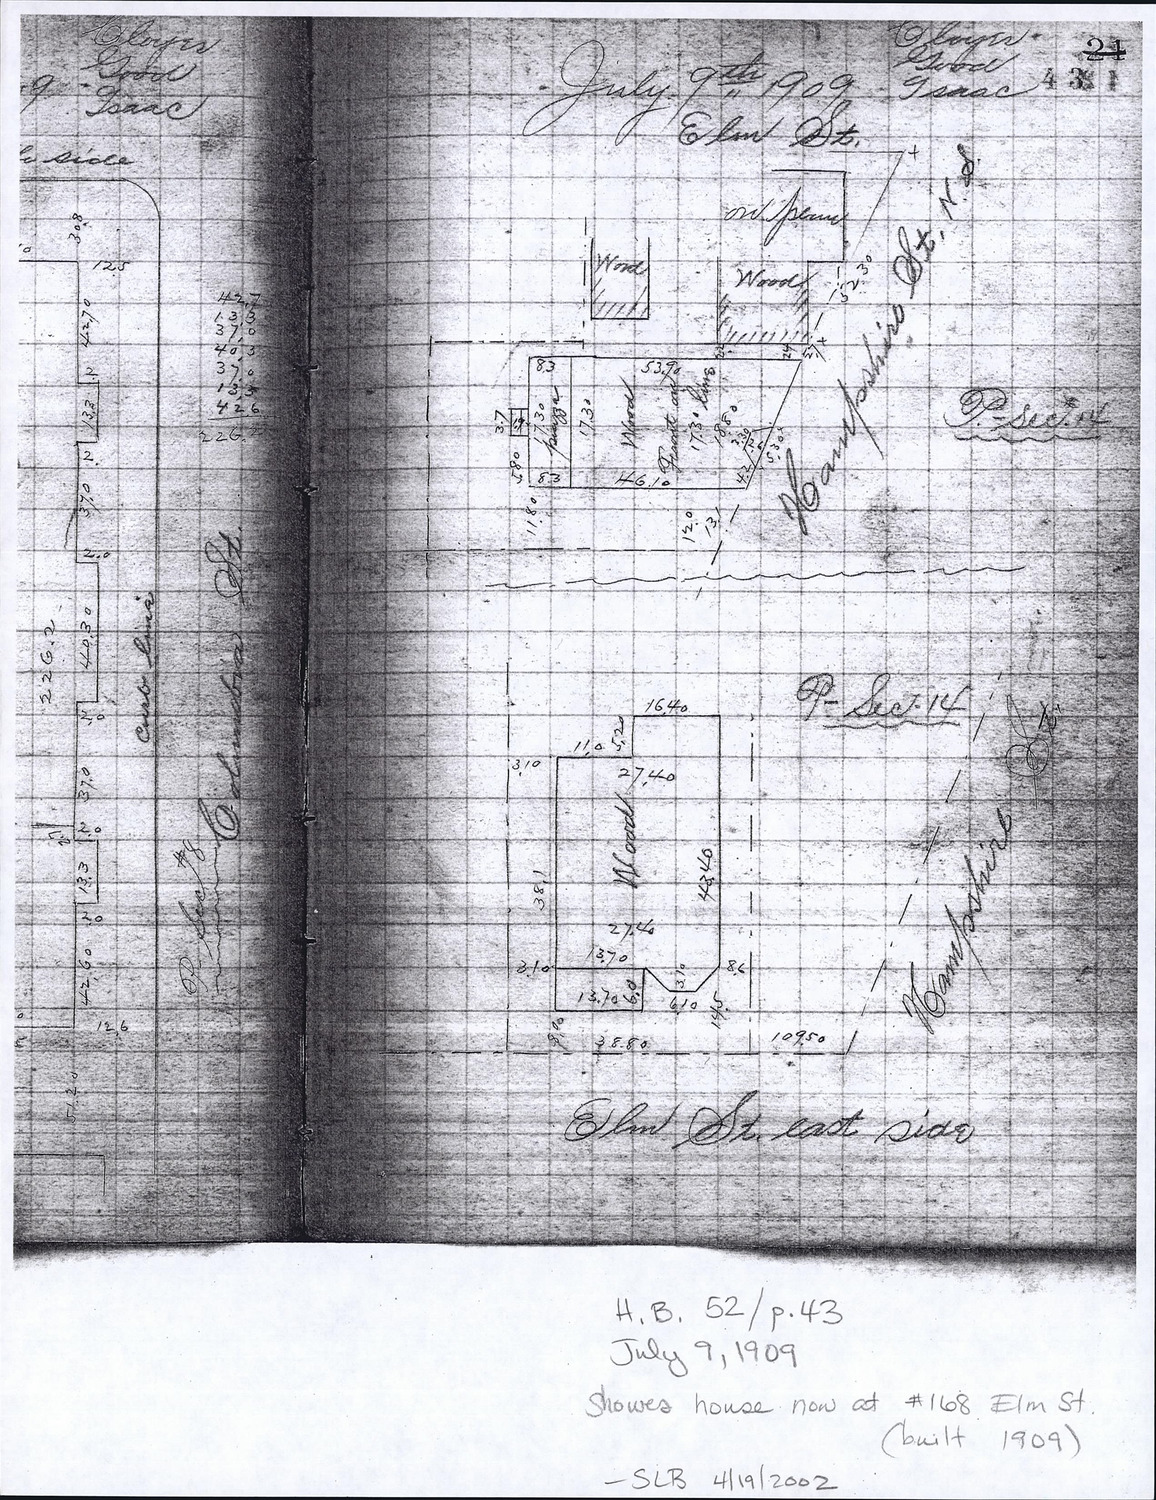 Cloyes
Good
Isaac
side
30.8
12.5
42.70
2
13.3
2
37.0
2.0
40.30
226.2
2.0
37.0
2.0
13.3
2.0
42.60
12.6
51.20
42.7
13.3
37.0
40.3
37.0
13.3
42.6
226.2
Curb line
Columbia St.
P. Sec. #8
July 9th 1909
Cloyes
Good
Isaac
21
431
Elm St.
Hampshire St. N. S.
Wood
Wood
P- Sec. #14
8.3
53.90
3.7
17.30
piazza
17.30
Wood
Front on
17.30 line
18.80
5.30
5.80
8.3
46.10
4.2
11.80
12.0
13.1
P- Sec. 14
16.40
11.0
5.20
3.10
27.40
Wood
38.1
43.40
27.40
13.70
3.10
3.10
8.6
13.70
6.0
6.10
14.5
38.80
109.50
Hampshire St.
Elm St. east side
H.B. 52/p.43
July 9, 1909
Shows house now at #168 Elm St.
(built 1909)
—SLB 4/19/2002